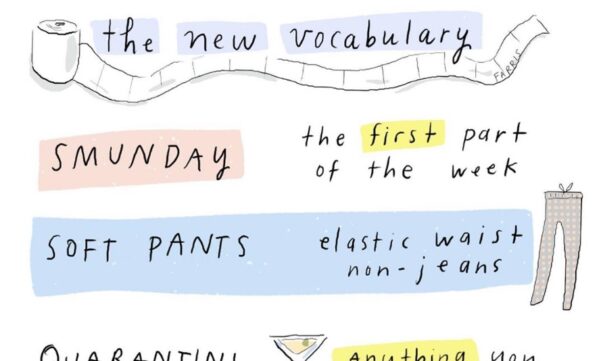 the new vocabulary
FARRIS
SMUNDAY
the first part
of the week
SOFT PANTS
elastic waist
non-jeans
QUARANTINI
anything you